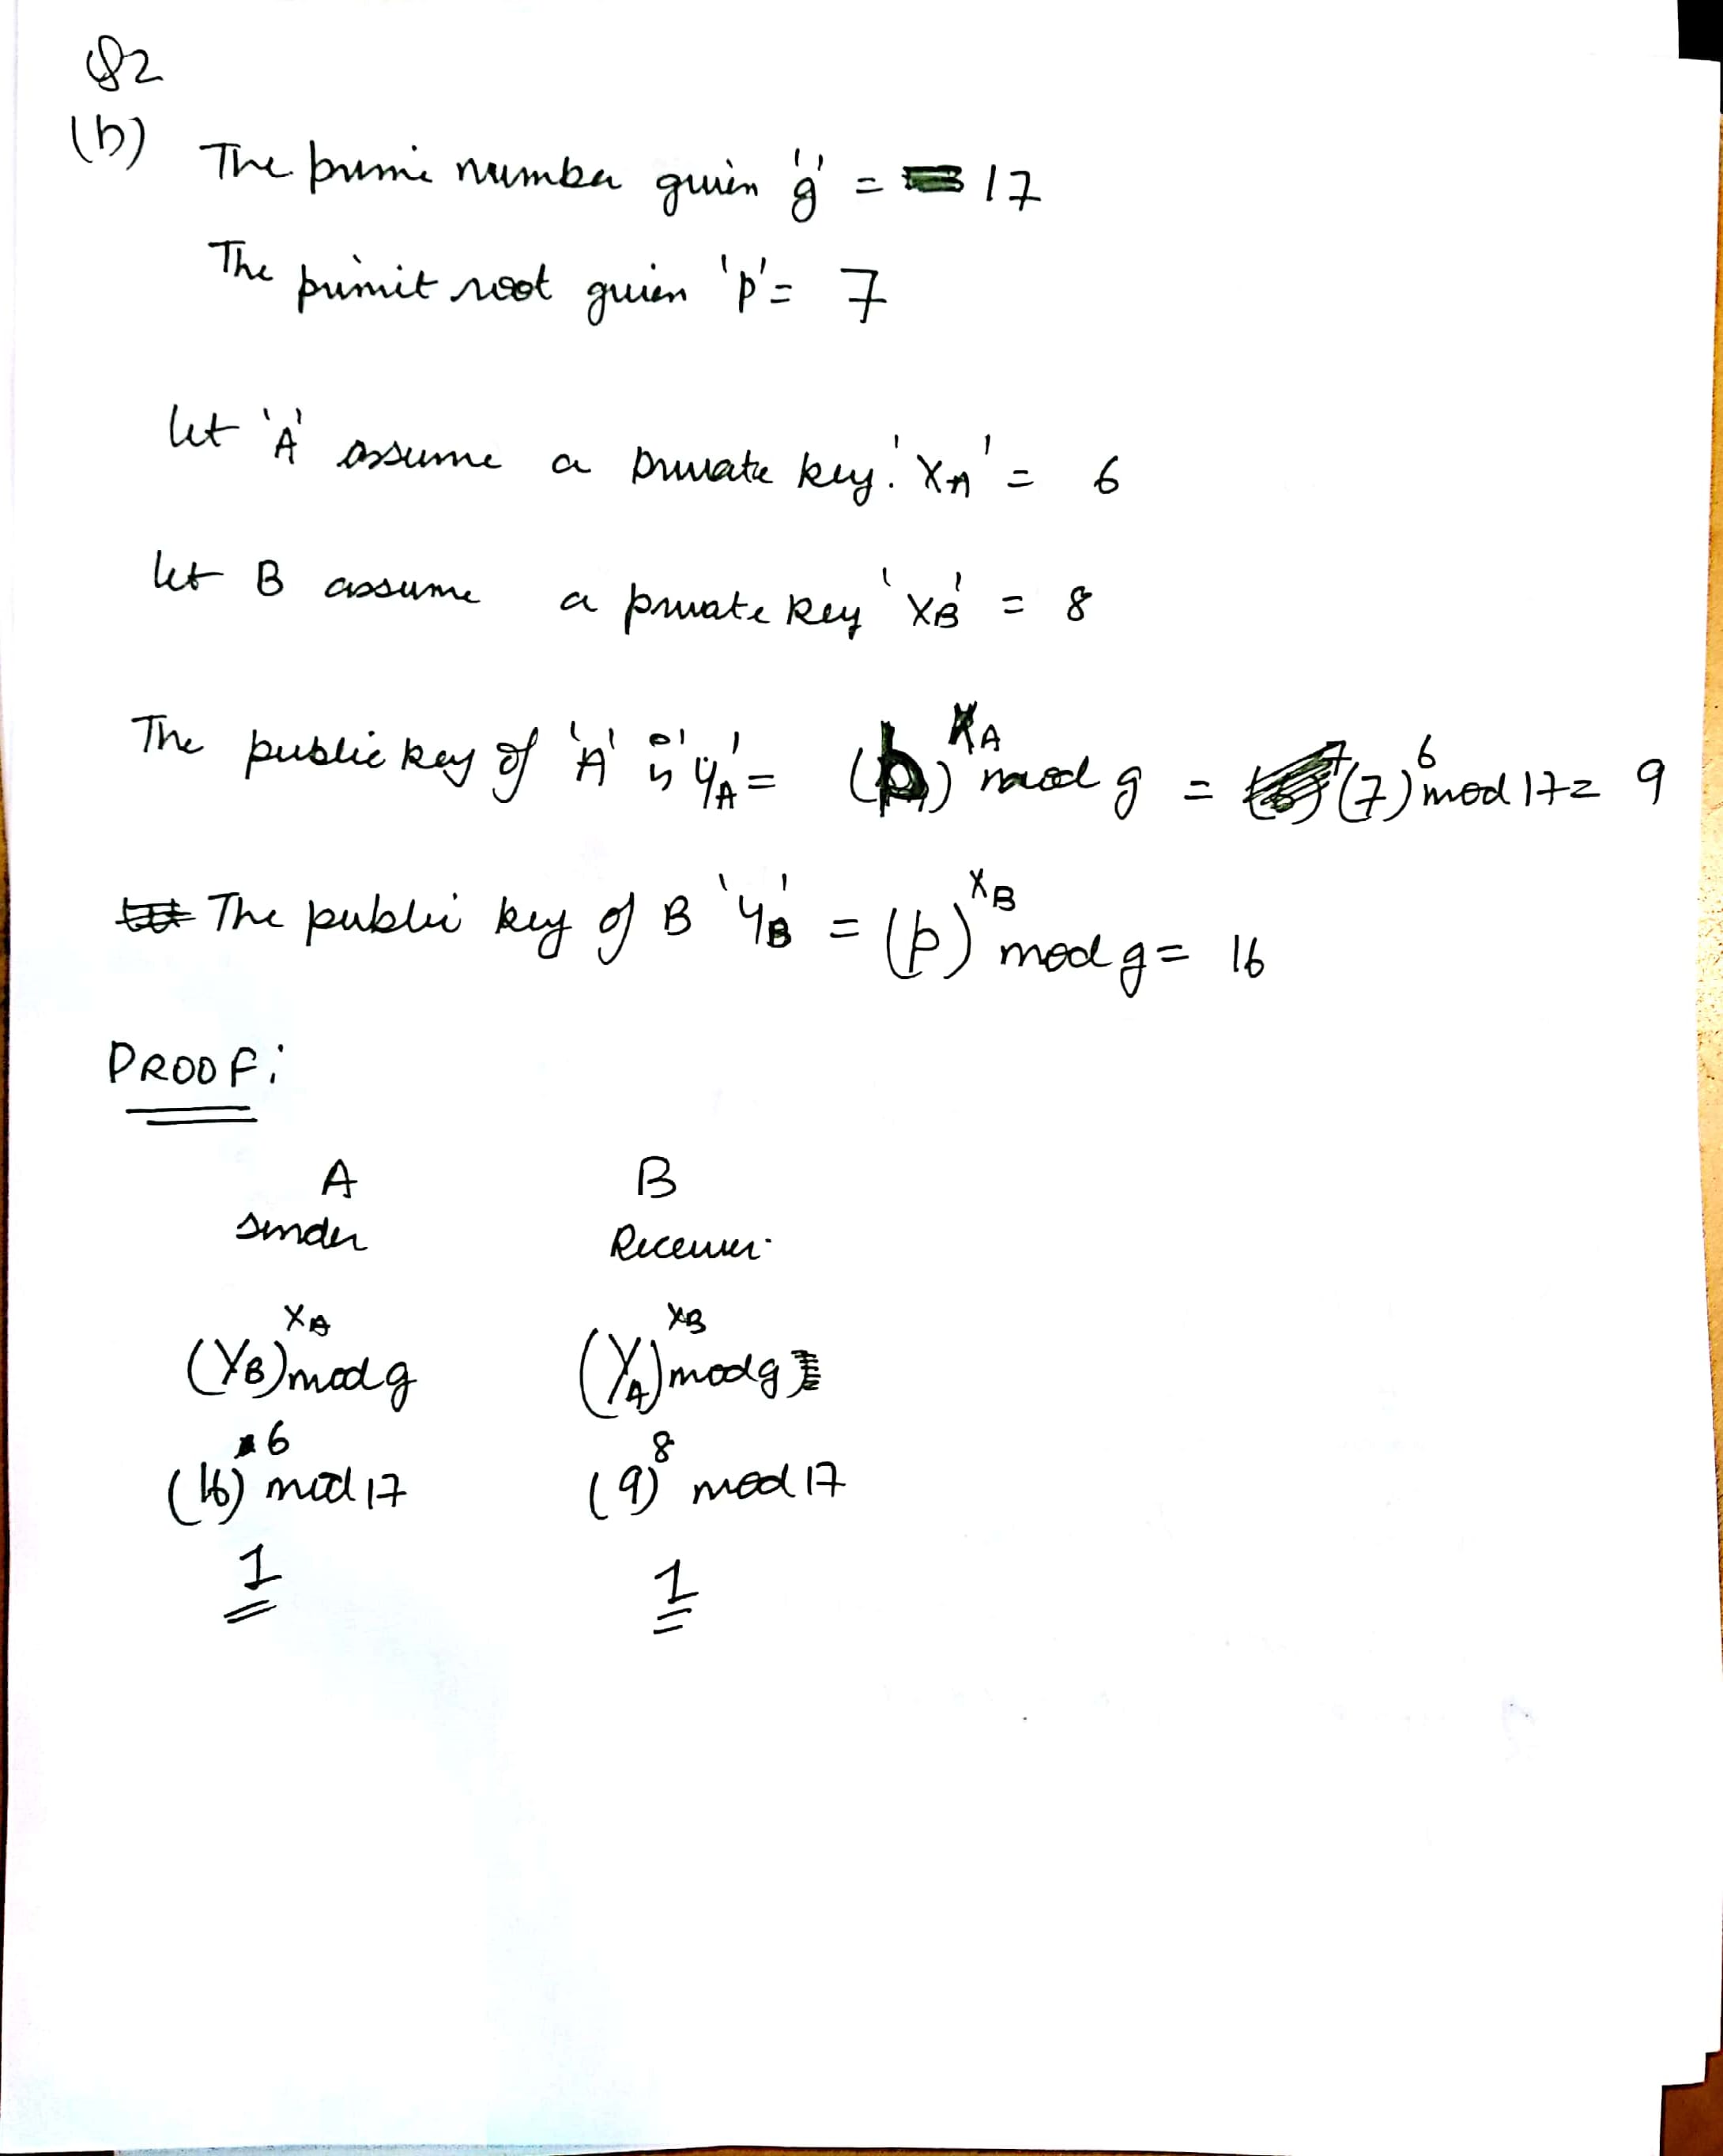 Q2
(b)
The prime number given 'g' = 17
The primit root given 'p' = 7
let 'A' assume a private key 'XA' = 6
let B assume a private key 'XB' = 8
The public key of 'A' is 'YA' = (p)^XA mod g = (7)^6 mod 17 = 9
The public key of B 'YB' = (p)^XB mod g = 16
PROOF:
A B
sender Receiver.
(YB)^XA mod g (YA)^XB mod g
(16)^6 mod 17 (9)^8 mod 17
1 1